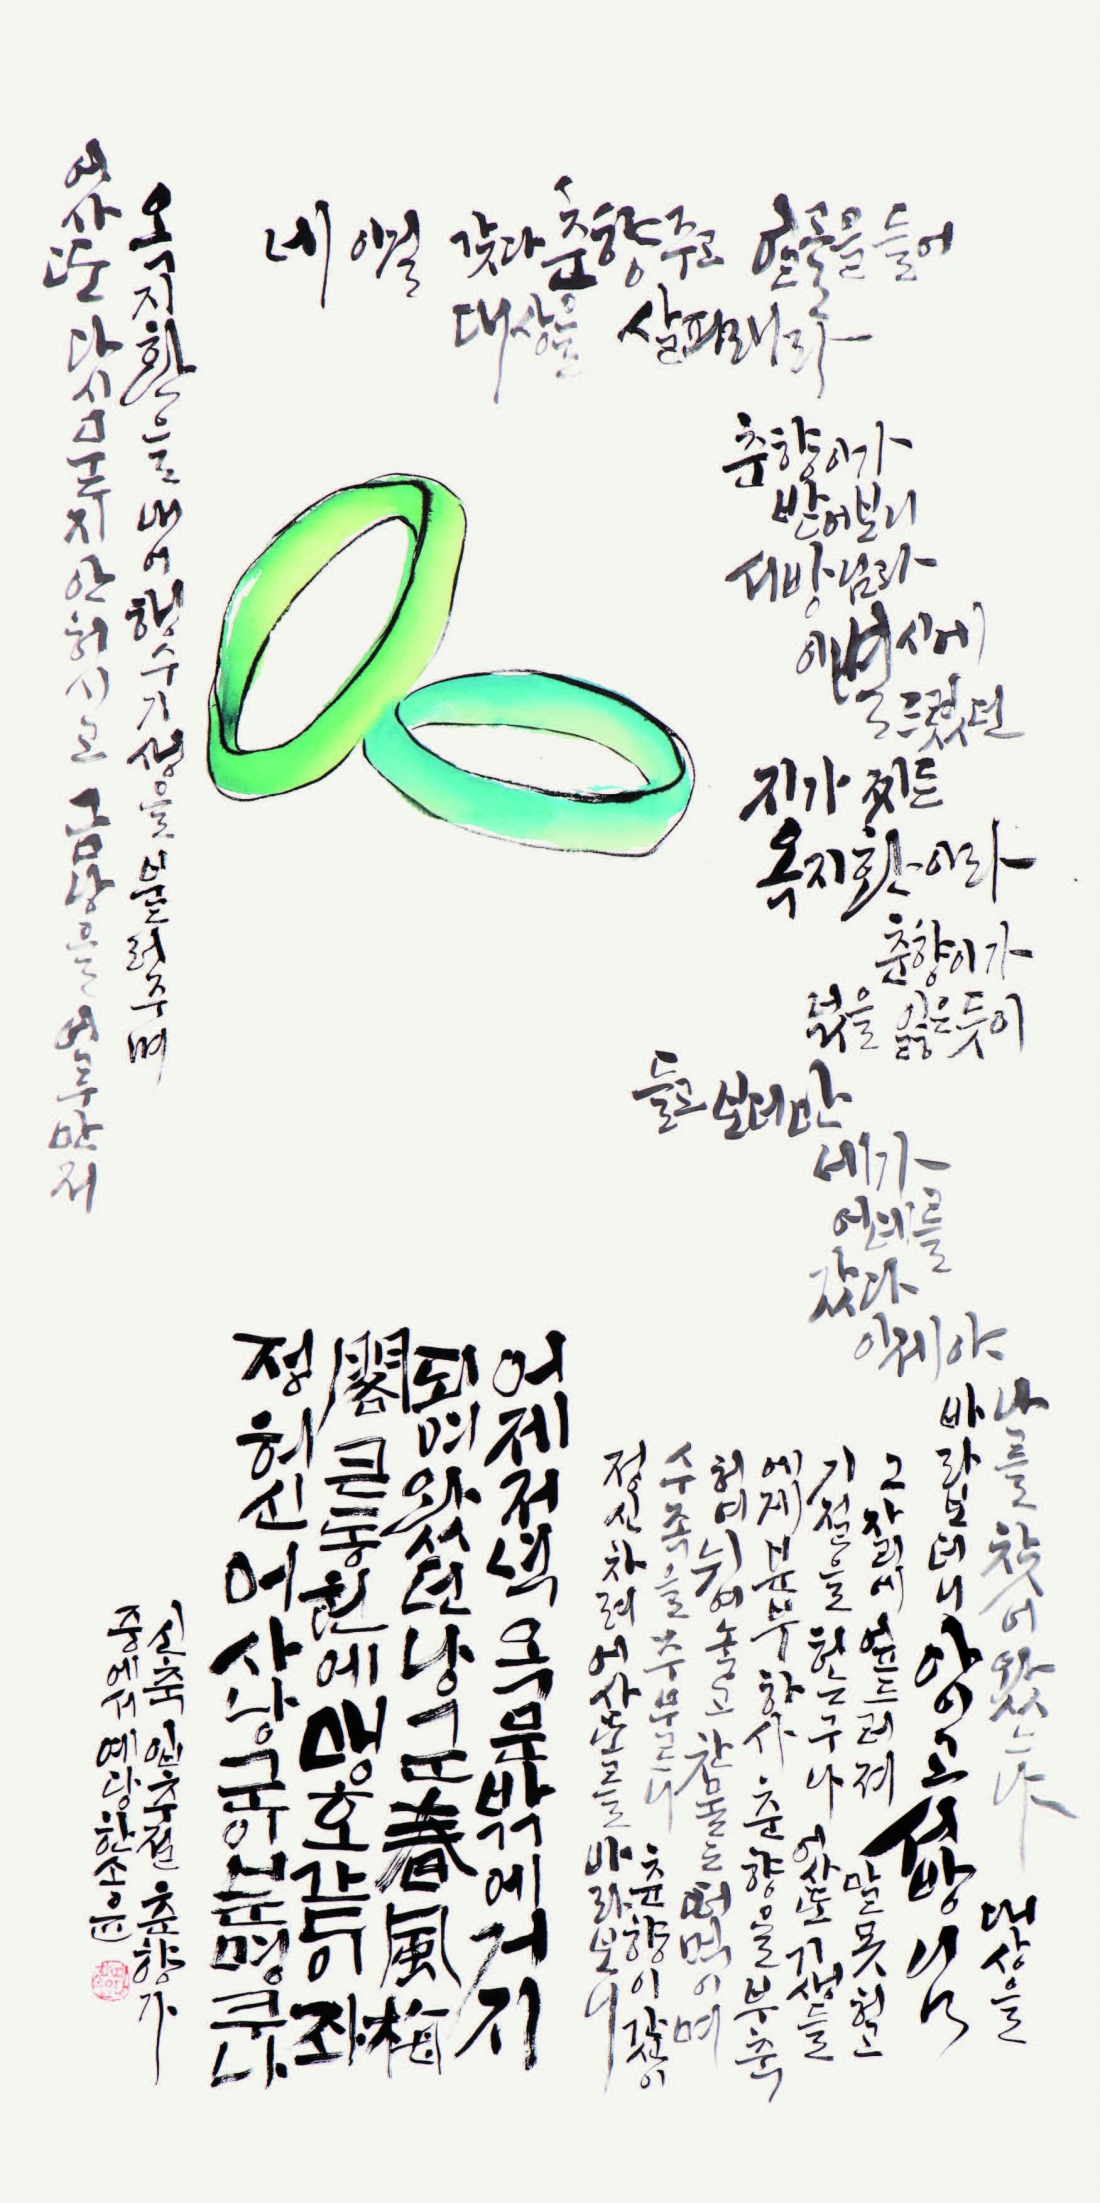 어사또 다시 묻지 안허시고 금낭을 어루만져
옥지환을 내어 행수기생을 불러주며
네 이걸 갖다 춘향주고 얼골을 들어
대상을 살펴래라
춘향이가
받어보니
서방님과
이별시에
드렸던
지가 찌든
옥지환이라
춘향이가
넋을 잃은듯이
들고 보더만
네가
어데를
갔다
이제야
나를 찾어왔느냐 대상을
바라보더니 아이고 서방님
그 자리에 엎드러져 말 못허고
기절을 허는구나 어사또 기생들
에게 분부하사 춘향을 부축
허여 뉘여놓고 찬물도 떠먹이며
수족을 주무르니 춘향이
정신차려 어사또를 바라보니
어제저녁 옥문밖에 거지
되여 왔던 낭군 春風梅
閣 큰동헌에 맹호같이 좌
정허신 어사낭군이 분명쿠나
신축 인추절 춘향가
중에서 예당 한소윤